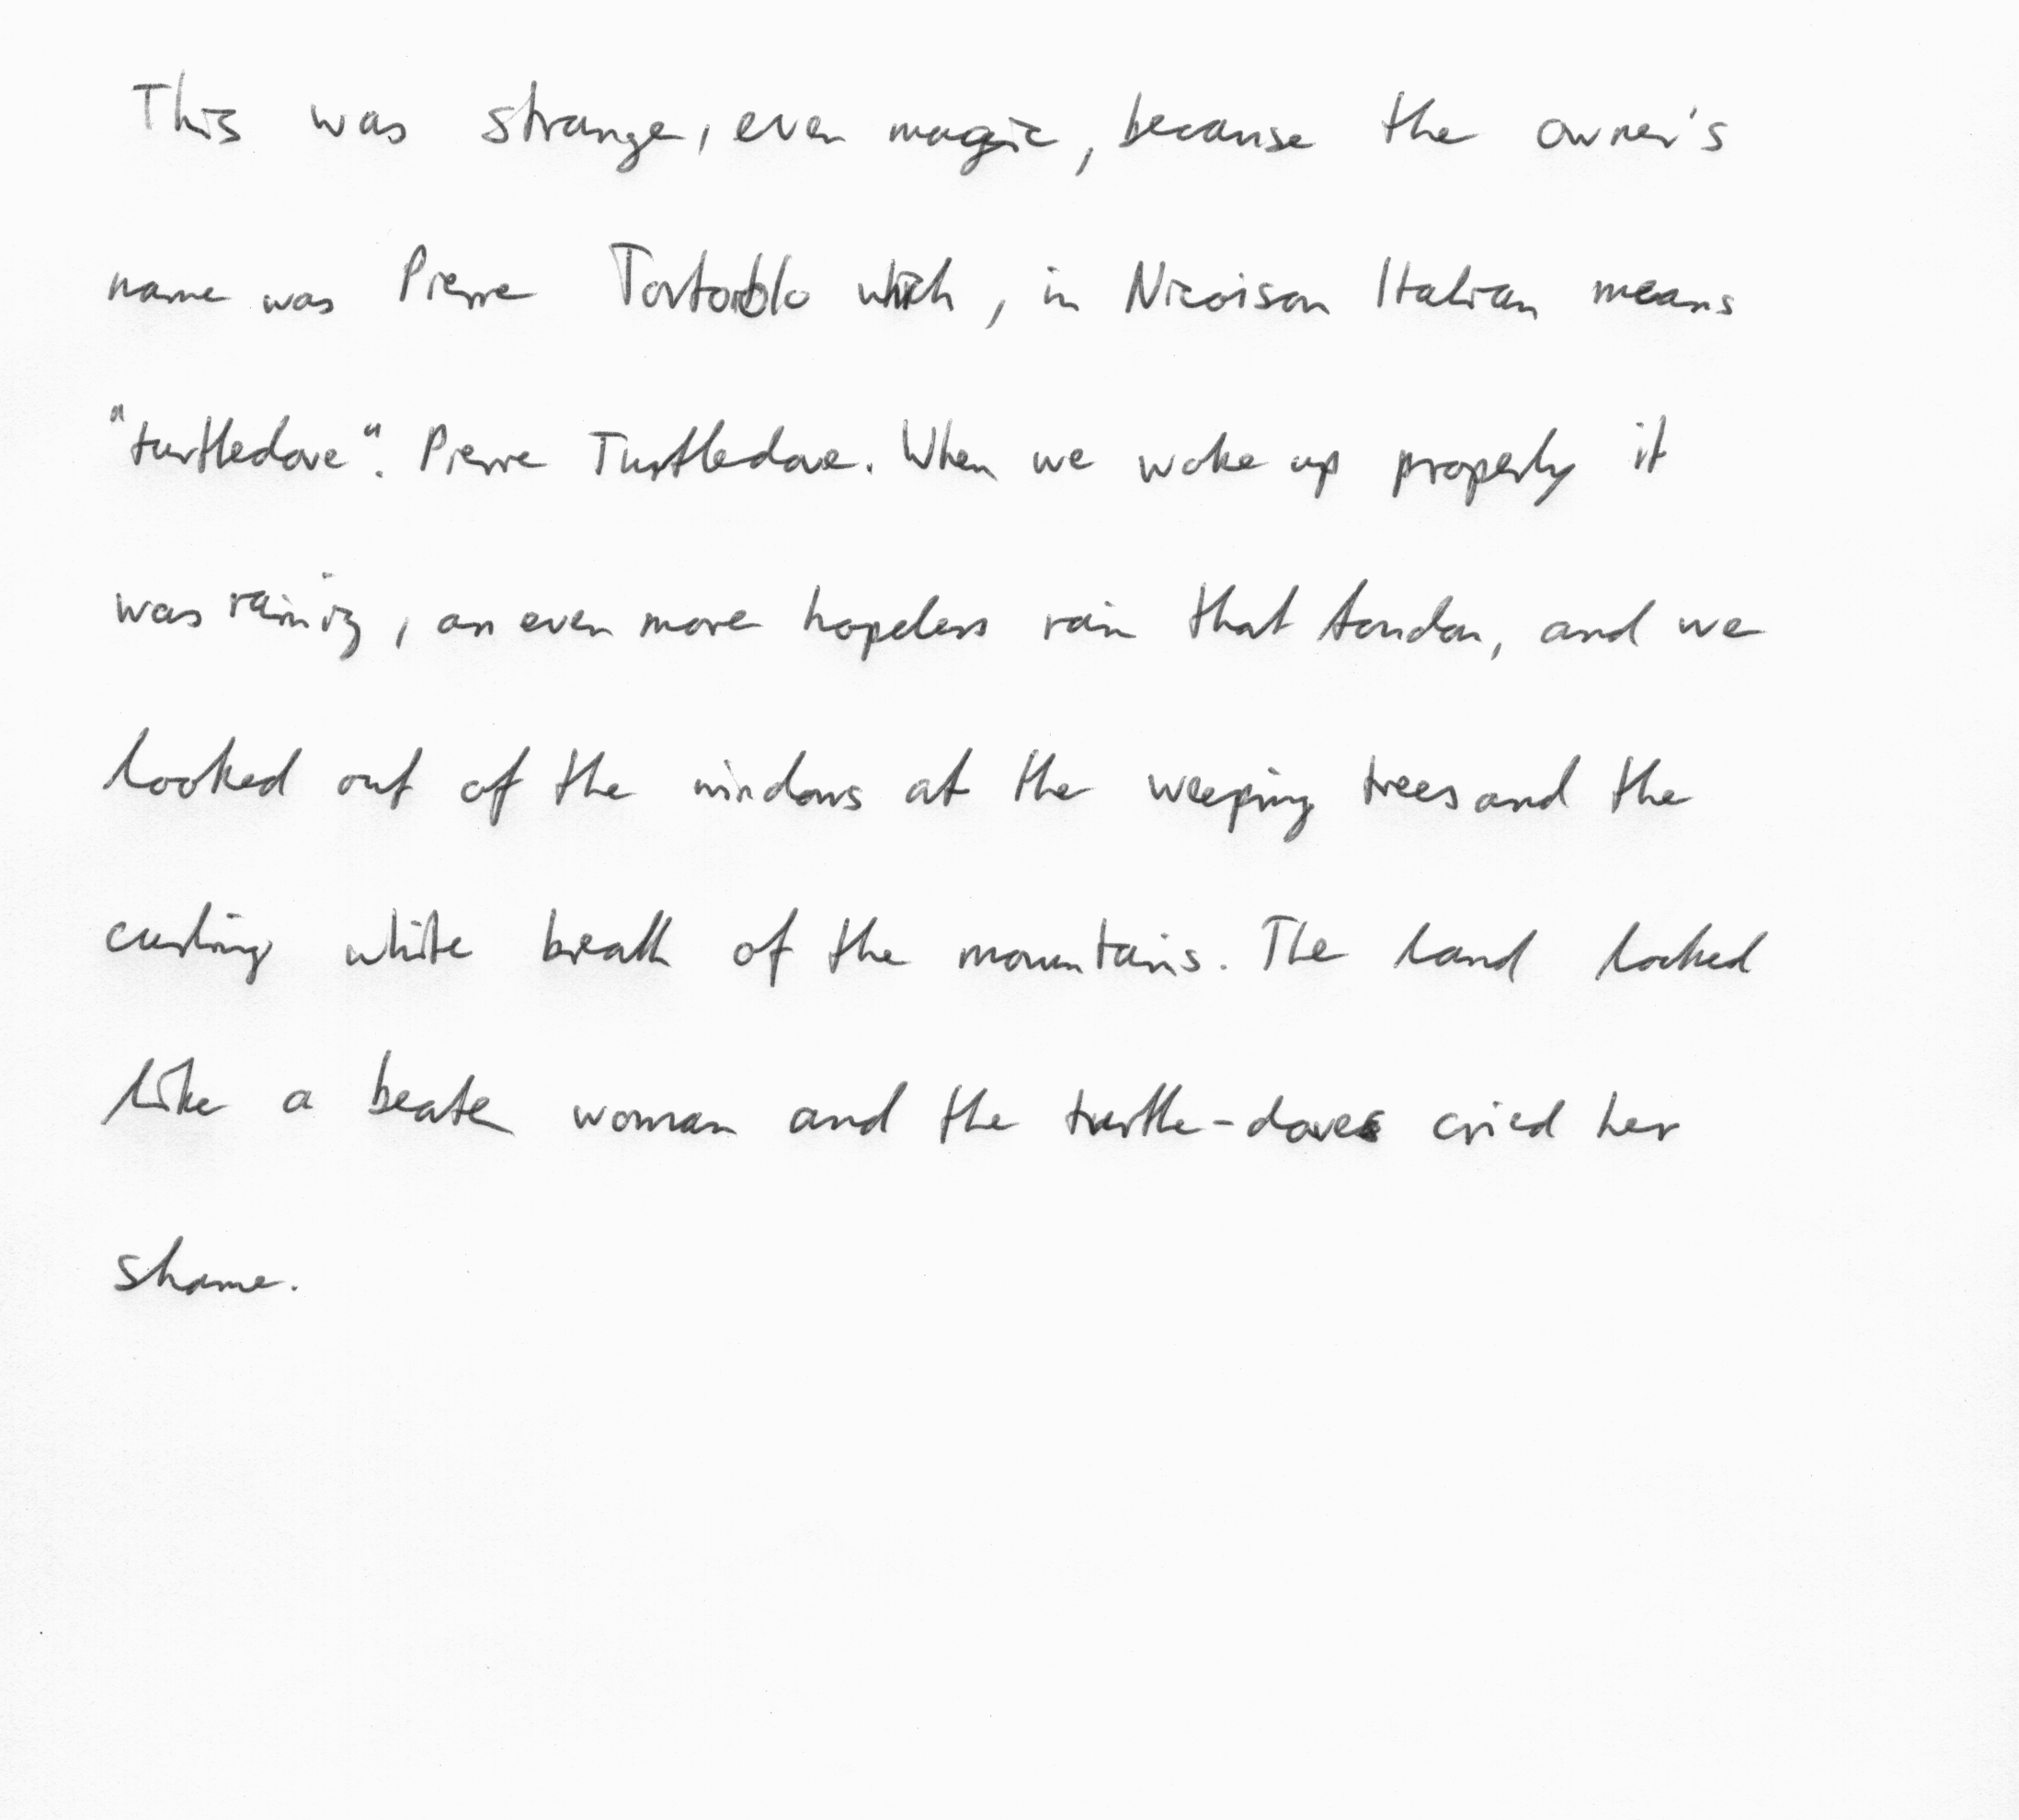 This was strange, even magic, because the owner's
name was Pierre Tortorblo which, in Nicoisan Italian means
"turtledove". Pierre Turtledove. When we woke up properly it
was raining, an even more hopeless rain that London, and we
looked out of the windows at the weeping trees and the
curling white breath of the mountains. The land looked
like a beaten woman and the turtle-doves cried her
shame.